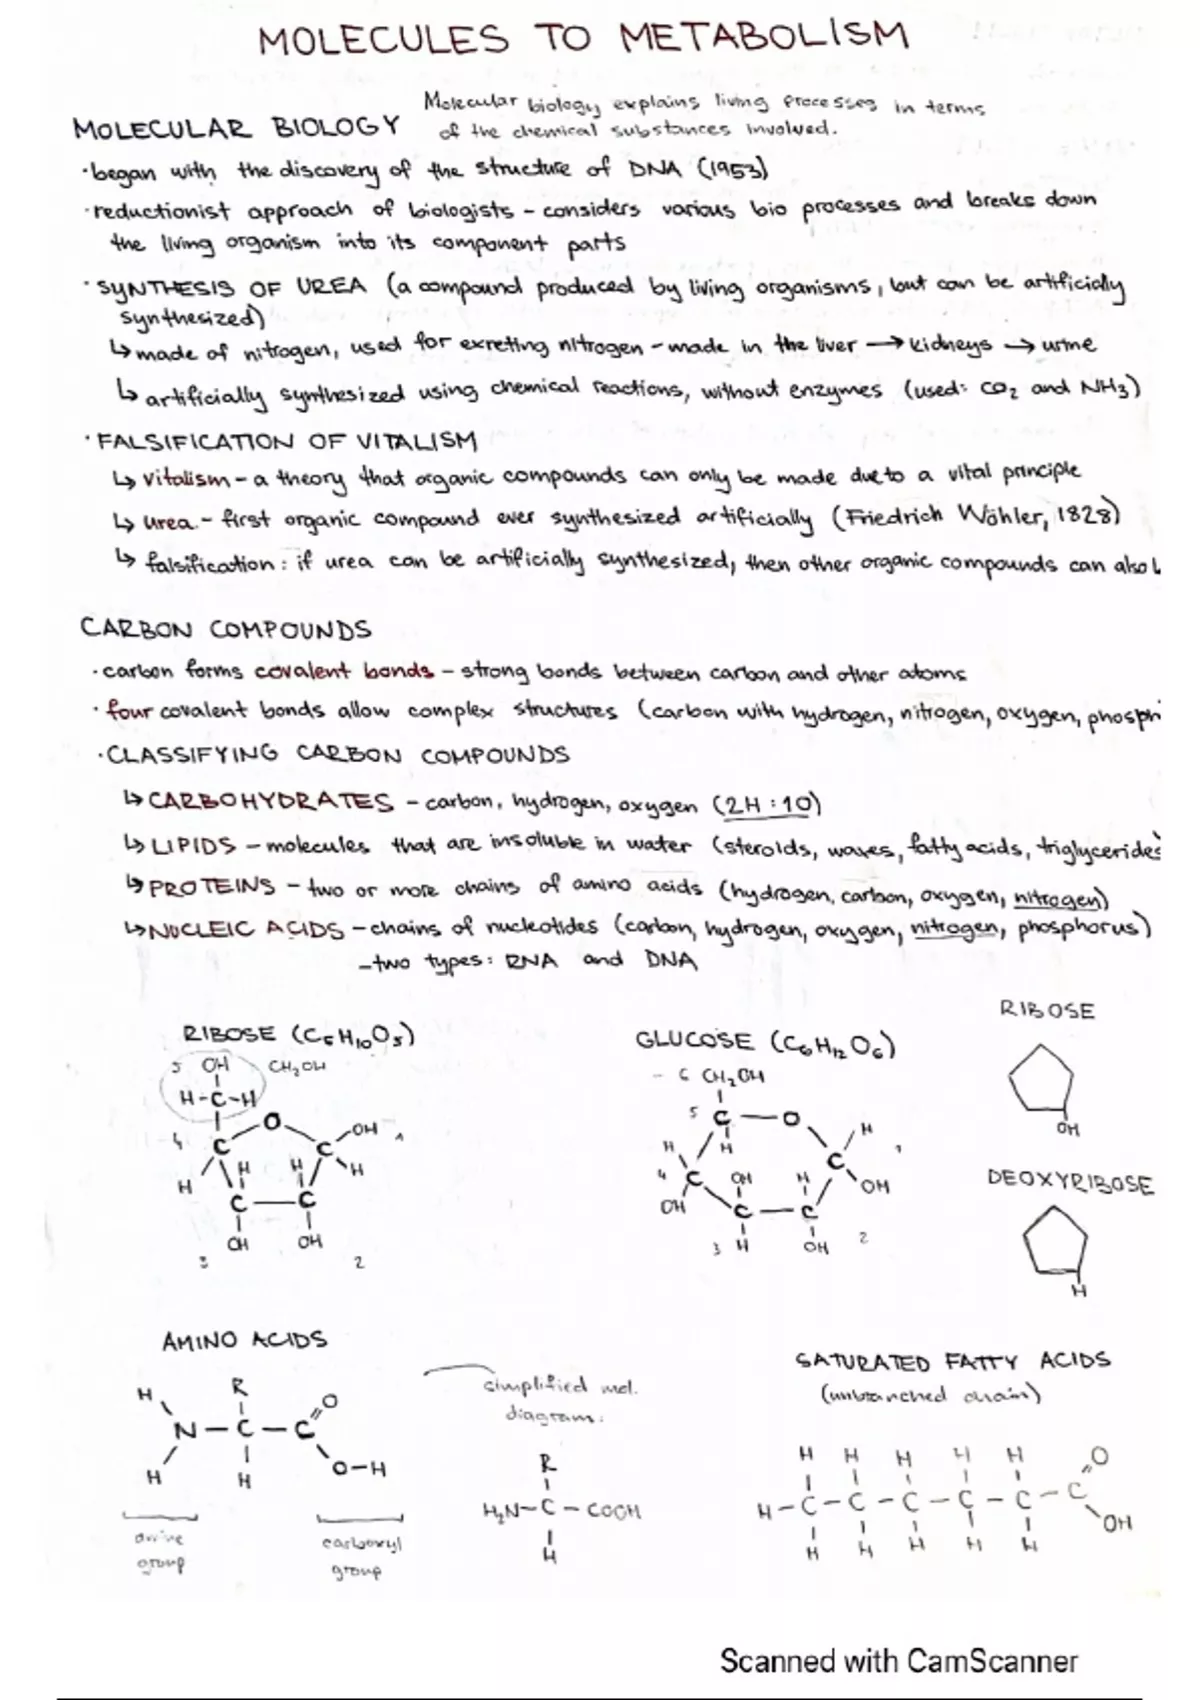 MOLECULES TO METABOLISM
MOLECULAR BIOLOGY
Molecular biology explains living processes in terms
of the chemical substances involved.
·began with the discovery of the structure of DNA (1953)
·reductionist approach of biologists - considers various bio processes and breaks down
the living organism into its component parts
·SYNTHESIS OF UREA (a compound produced by living organisms, but can be artificially
synthesized)
↳ made of nitrogen, used for excreting nitrogen - made in the liver → kidneys → urine
↳ artificially synthesized using chemical reactions, without enzymes (used: CO₂ and NH₃)
·FALSIFICATION OF VITALISM
↳ vitalism - a theory that organic compounds can only be made due to a vital principle
↳ urea - first organic compound ever synthesized artificially (Friedrich Wöhler, 1828)
↳ falsification: if urea can be artificially synthesized, then other organic compounds can also
CARBON COMPOUNDS
·carbon forms covalent bonds - strong bonds between carbon and other atoms
·four covalent bonds allow complex structures (carbon with hydrogen, nitrogen, oxygen, phosph
·CLASSIFYING CARBON COMPOUNDS
↳ CARBOHYDRATES - carbon, hydrogen, oxygen (2H:1O)
↳ LIPIDS - molecules that are insoluble in water (steroids, waxes, fatty acids, triglycerides
↳ PROTEINS - two or more chains of amino acids (hydrogen, carbon, oxygen, nitrogen)
↳ NUCLEIC ACIDS - chains of nucleotides (carbon, hydrogen, oxygen, nitrogen, phosphorus)
- two types: RNA and DNA
RIBOSE (C₅H₁₀O₅)
5 OH CH₂OH
H-C-H
O
4 C C OH 1
H H H H
C — C
OH OH
3 2
GLUCOSE (C₆H₁₂O₆)
- 6 CH₂OH
5 C — O
H H H 1
4 C OH H C OH
OH C — C
3 H OH 2
RIBOSE
OH
DEOXYRIBOSE
H
AMINO ACIDS
H R O
N - C - C
H H O-H
amine
group
carboxyl
group
simplified mol.
diagram:
R
H₂N-C-COOH
H
SATURATED FATTY ACIDS
(unbranched chain)
H H H H H O
H-C-C-C-C-C-C
H H H H H OH
Scanned with CamScanner